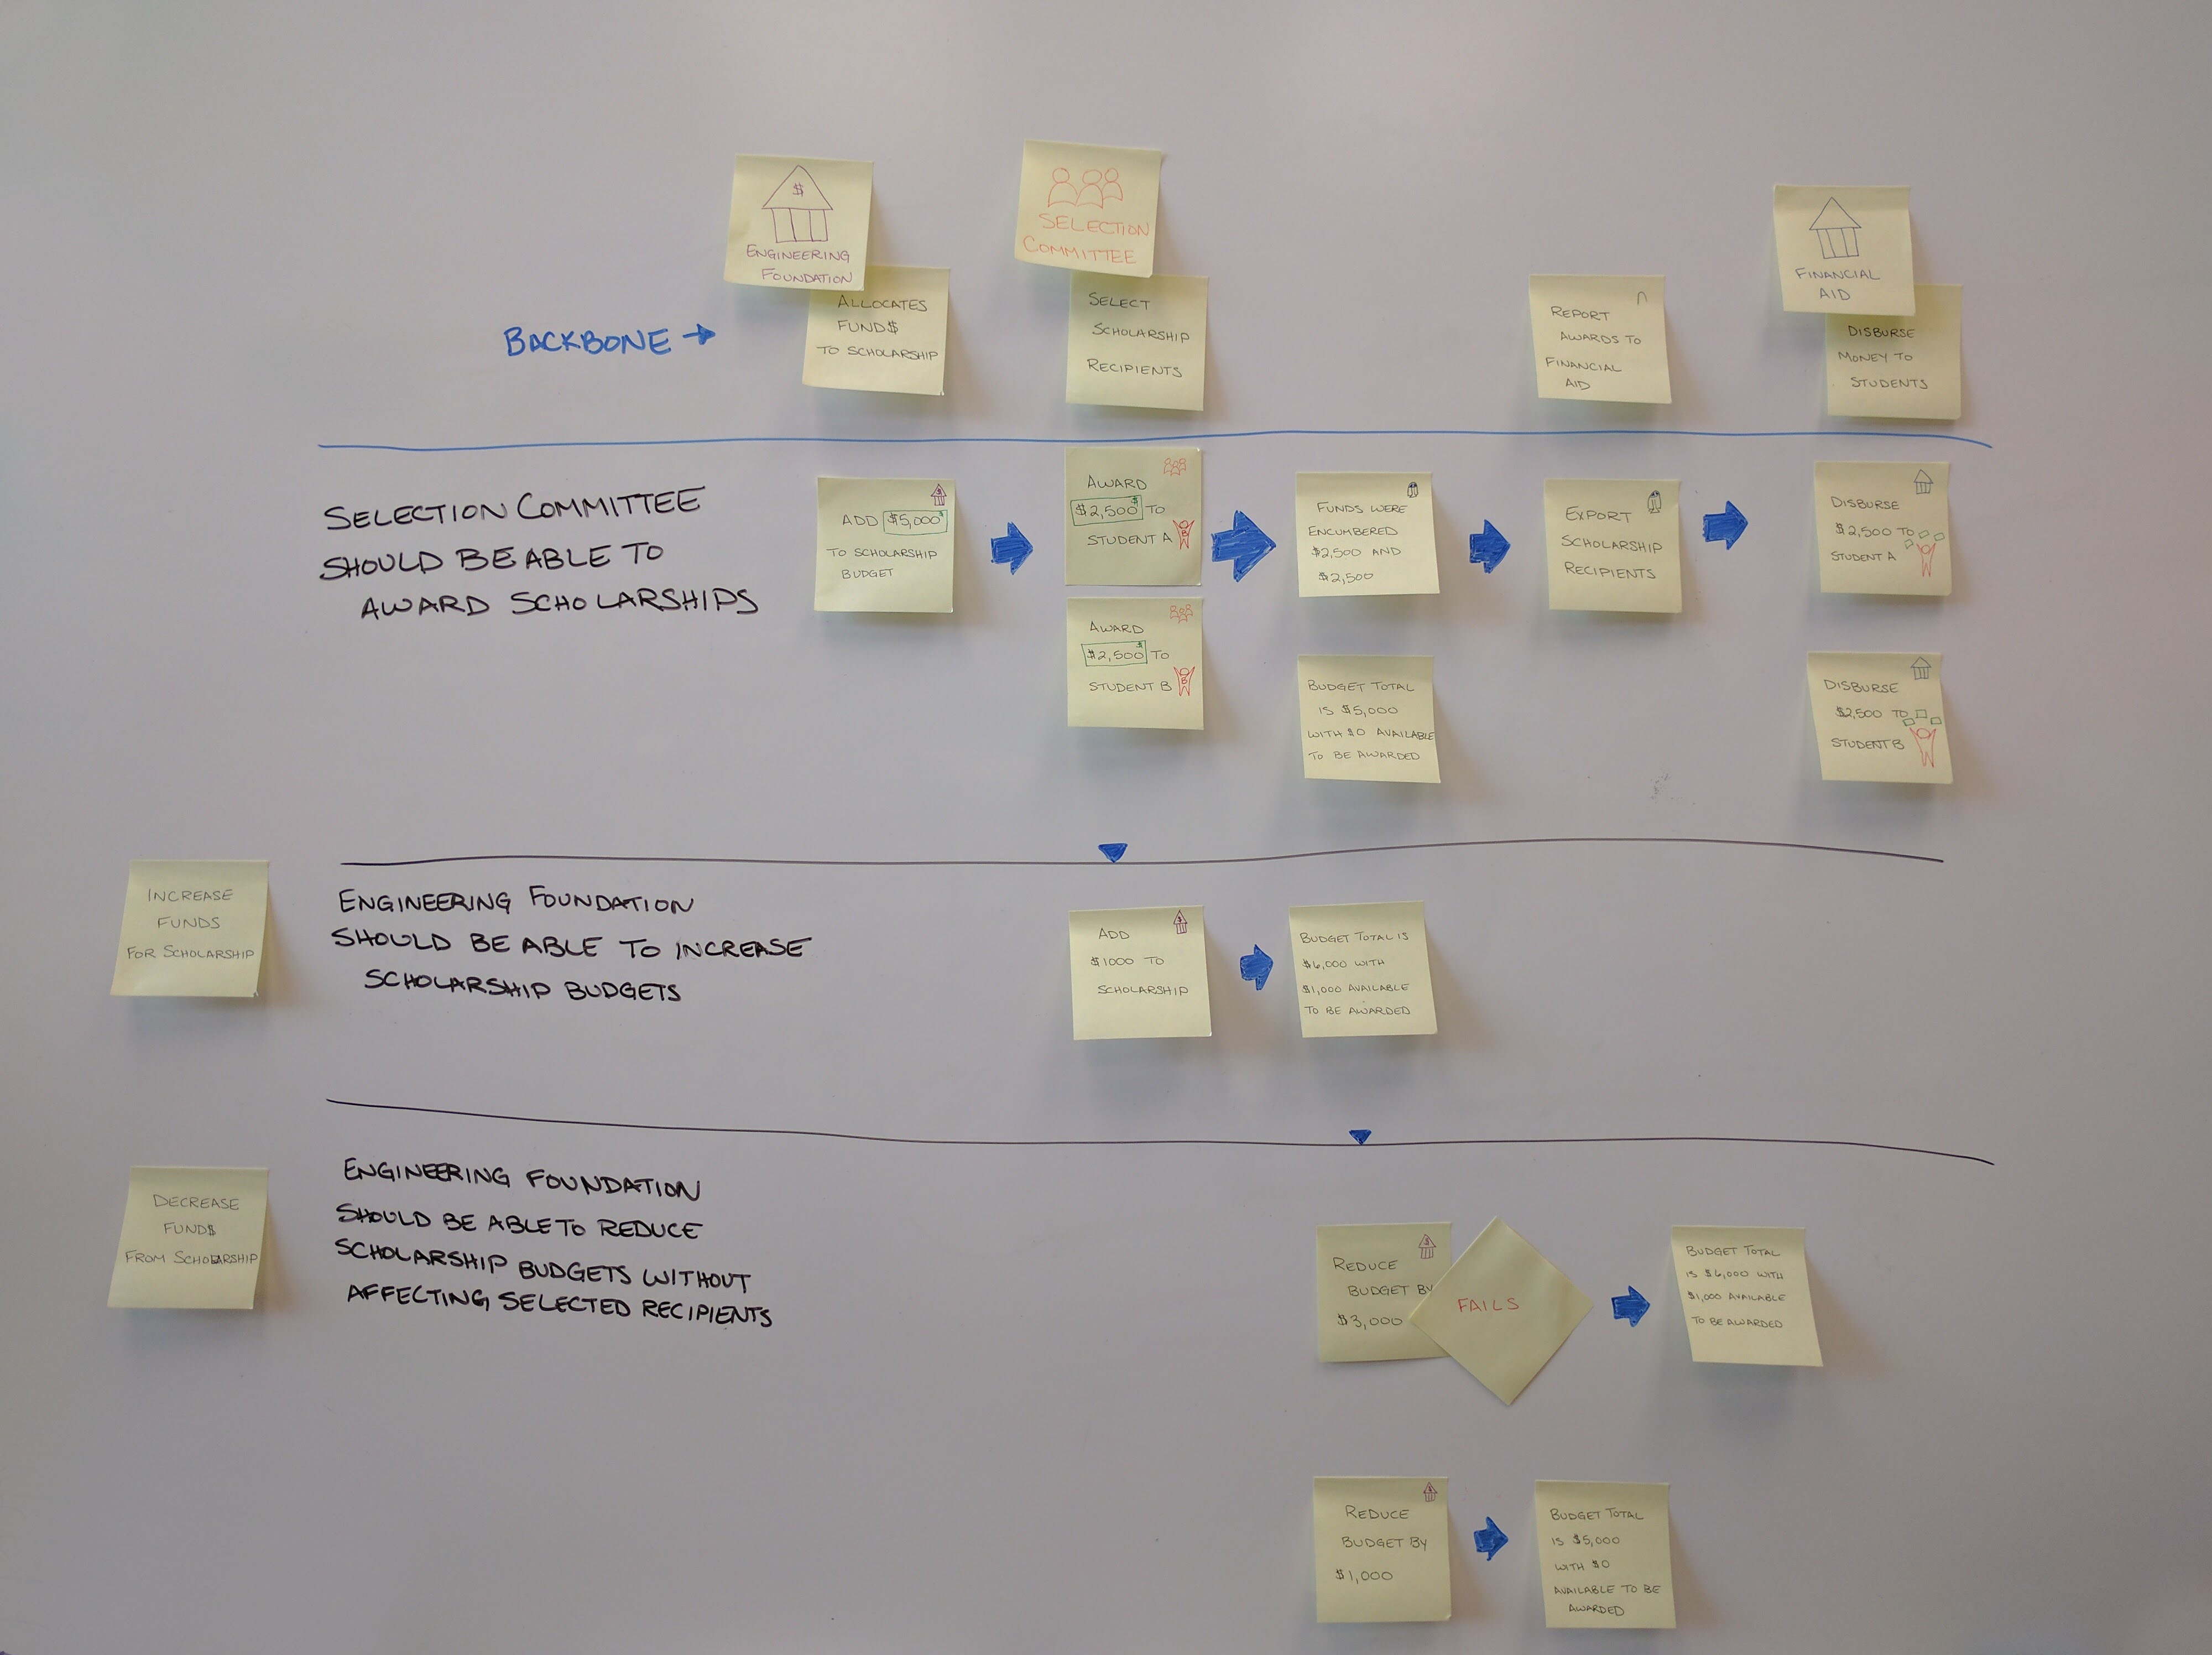 $
ENGINEERING
FOUNDATION
ALLOCATES
FUND$
TO SCHOLARSHIP
SELECTION
COMMITTEE
SELECT
SCHOLARSHIP
RECIPIENTS
REPORT
AWARDS TO
FINANCIAL
AID
FINANCIAL
AID
DISBURSE
MONEY TO
STUDENTS
BACKBONE →
SELECTION COMMITTEE
SHOULD BE ABLE TO
AWARD SCHOLARSHIPS
ADD $5,000
TO SCHOLARSHIP
BUDGET
AWARD
$2,500 TO
STUDENT A
AWARD
$2,500 TO
STUDENT B
FUNDS WERE
ENCUMBERED
$2,500 AND
$2,500
BUDGET TOTAL
IS $5,000
WITH $0 AVAILABLE
TO BE AWARDED
EXPORT
SCHOLARSHIP
RECIPIENTS
DISBURSE
$2,500 TO
STUDENT A
DISBURSE
$2,500 TO
STUDENT B
INCREASE
FUNDS
FOR SCHOLARSHIP
ENGINEERING FOUNDATION
SHOULD BE ABLE TO INCREASE
SCHOLARSHIP BUDGETS
ADD
$1000 TO
SCHOLARSHIP
BUDGET TOTAL IS
$6,000 WITH
$1,000 AVAILABLE
TO BE AWARDED
DECREASE
FUND$
FROM SCHOLARSHIP
ENGINEERING FOUNDATION
SHOULD BE ABLE TO REDUCE
SCHOLARSHIP BUDGETS WITHOUT
AFFECTING SELECTED RECIPIENTS
REDUCE
BUDGET BY
$3,000
FAILS
BUDGET TOTAL
IS $6,000 WITH
$1,000 AVAILABLE
TO BE AWARDED
REDUCE
BUDGET BY
$1,000
BUDGET TOTAL
IS $5,000
WITH $0
AVAILABLE TO BE
AWARDED